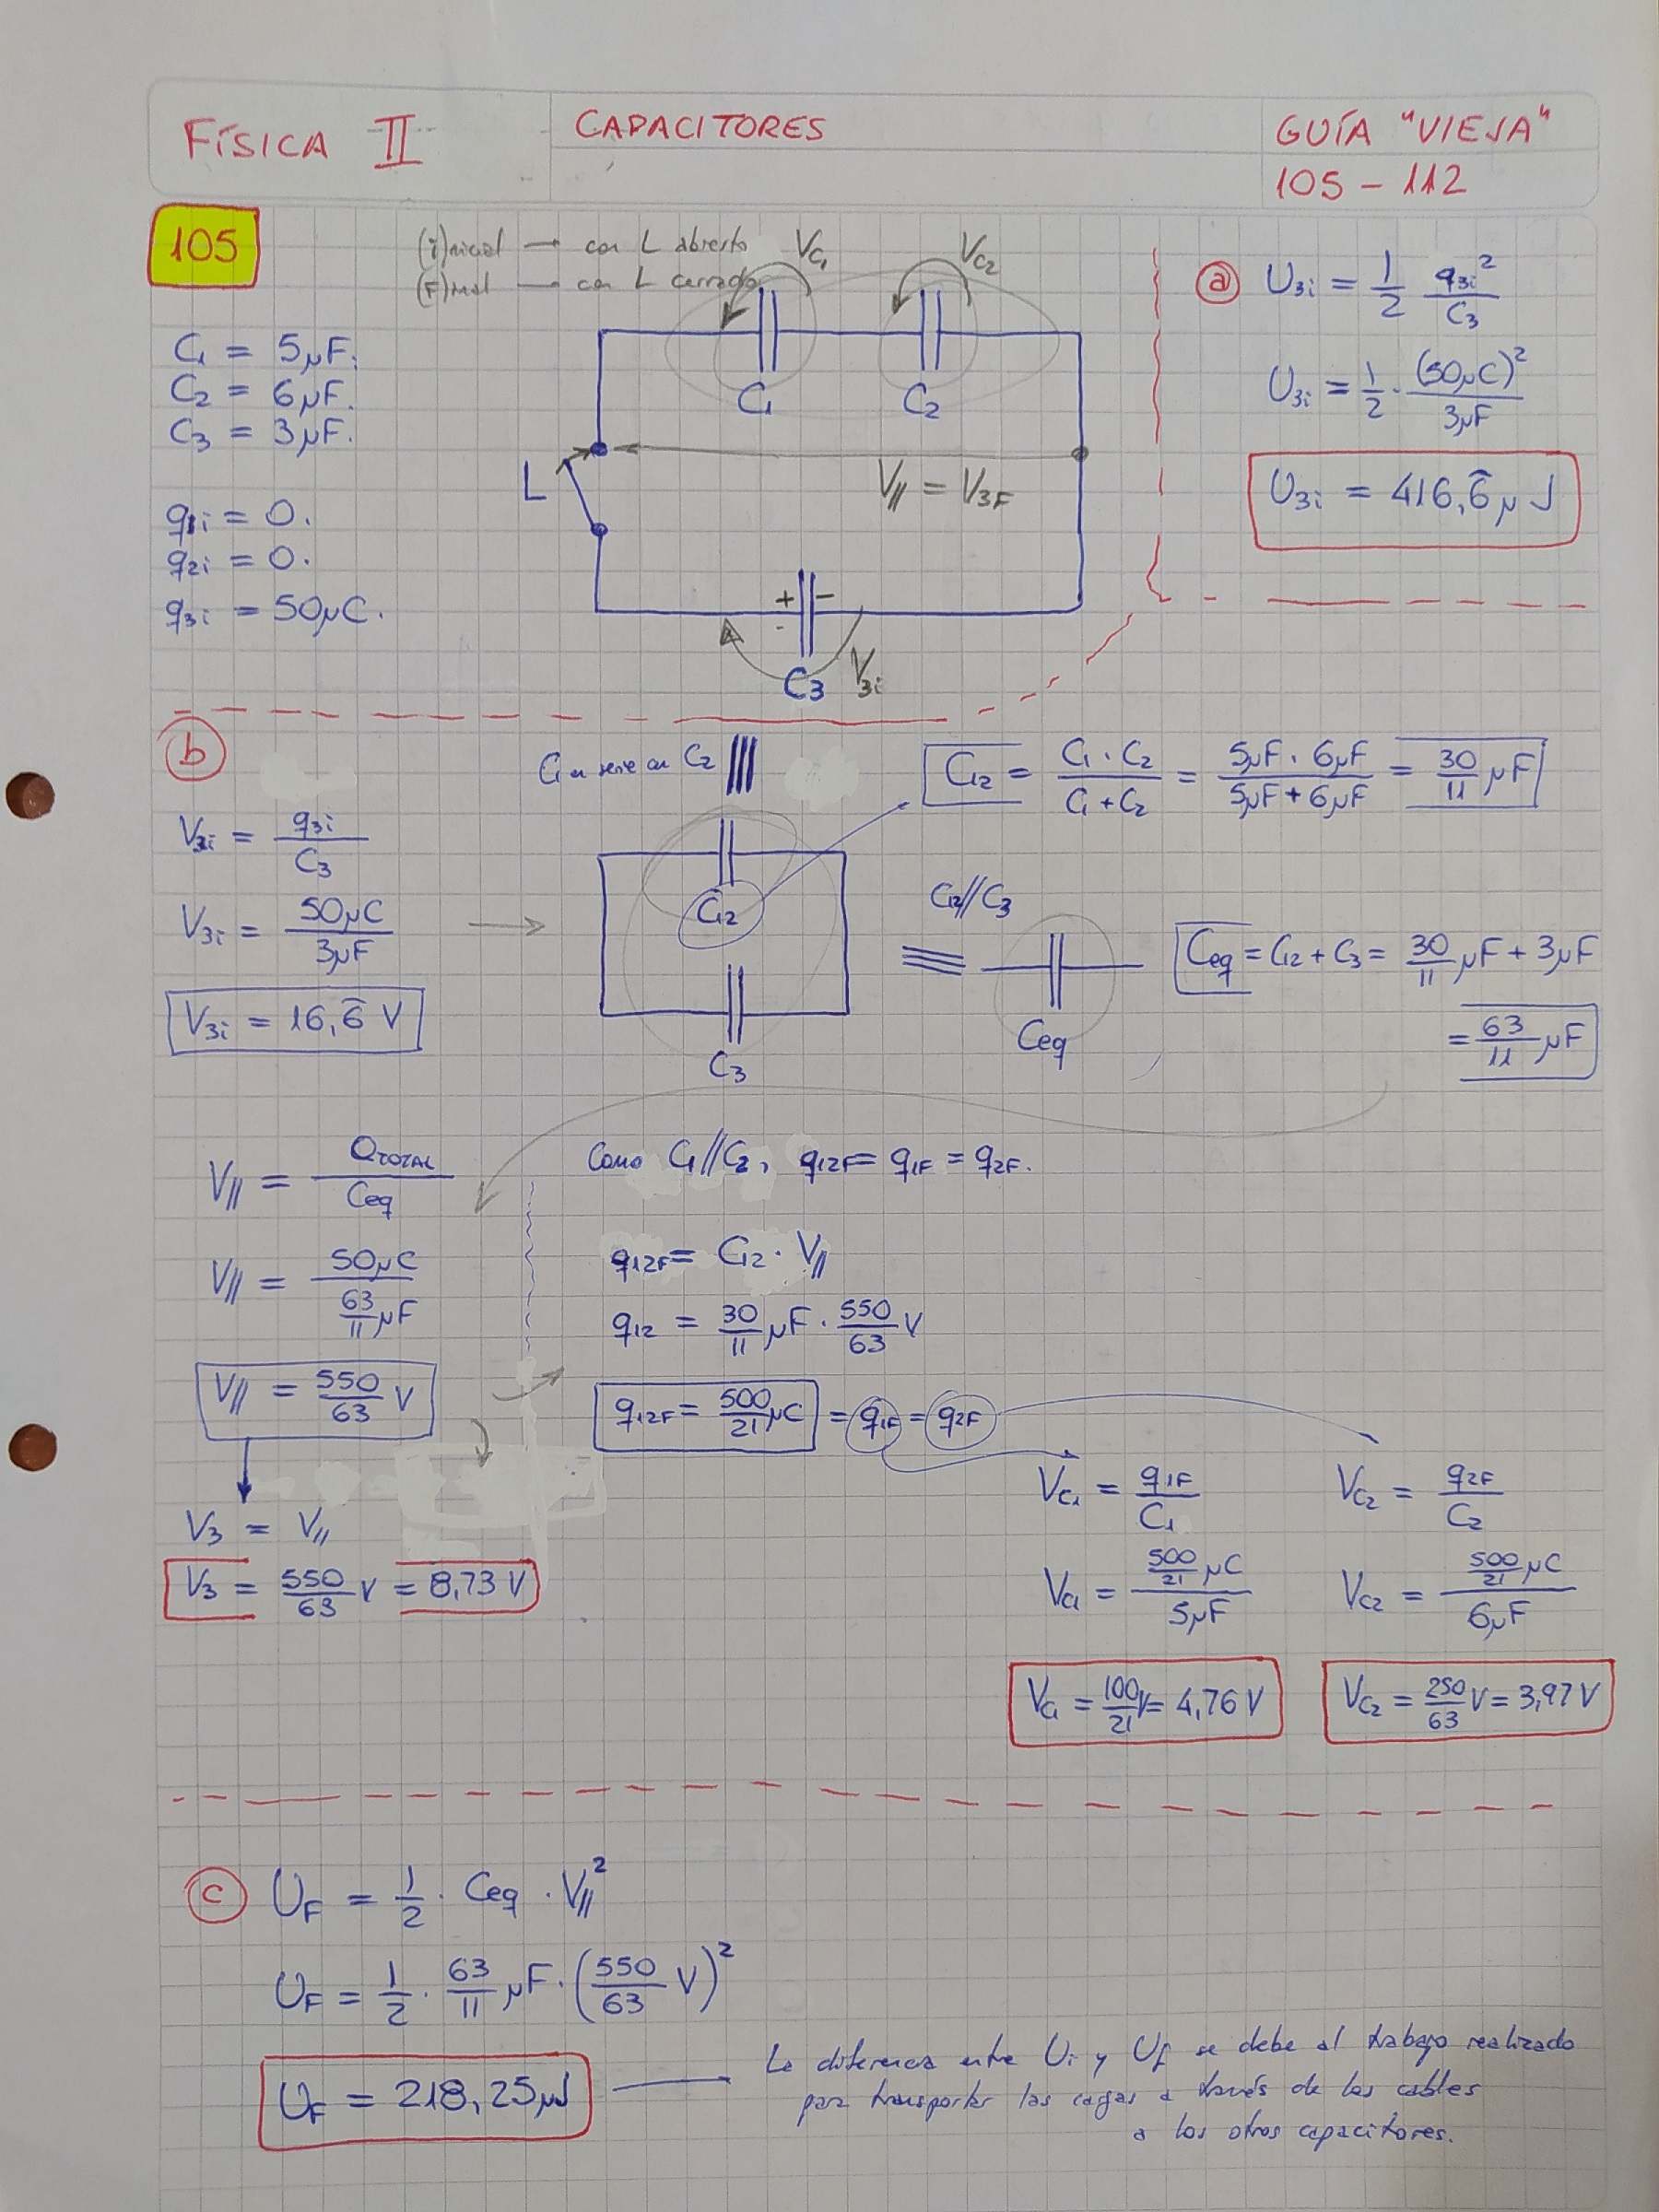 FÍSICA II
CAPACITORES
GUÍA "VIEJA"
105 - 112
105
(i)nicial → con L abierto
(F)inal → con L cerrado
C1 = 5μF.
C2 = 6μF.
C3 = 3μF.
q1i = 0.
q2i = 0.
q3i = 50μC.
VC1
VC2
C1
C2
L
V// = V3F
+ -
-
C3
V3i
a
U3i = 1/2 q3i²/C3
U3i = 1/2 · (50μC)²/3μF
U3i = 416,6̂ μJ
b
V3i = q3i/C3
V3i = 50μC/3μF
V3i = 16,6̂ V
C1 en serie con C2
C12 = C1 · C2/C1 + C2 = 5μF · 6μF/5μF + 6μF = 30/11 μF
C12
C3
C12//C3
Ceq
Ceq = C12 + C3 = 30/11 μF + 3μF
= 63/11 μF
V// = QTOTAL/Ceq
V// = 50μC/63/11 μF
V// = 550/63 V
V3 = V//
V3 = 550/63 V = 8,73 V
Como C1//C2, q12F = q1F = q2F.
q12F = C12 · V//
q12 = 30/11 μF · 550/63 V
q12F = 500/21 μC = q1F = q2F
VC1 = q1F/C1
VC1 = 500/21 μC/5μF
VC1 = 100/21 V = 4,76 V
VC2 = q2F/C2
VC2 = 500/21 μC/6μF
VC2 = 250/63 V = 3,97 V
c
UF = 1/2 · Ceq · V//²
UF = 1/2 · 63/11 μF · (550/63 V)²
UF = 218,25μJ
La diferencia entre Ui y Uf se debe al trabajo realizado
para transportar las cagas a través de los cables
a los otros capacitores.